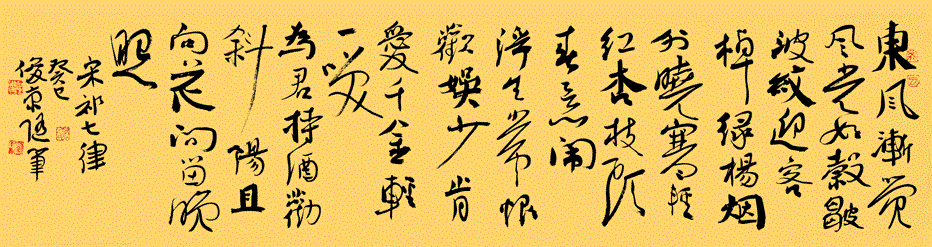 東風漸覺
风光如縠皺
波紋迎客
棹緑楊烟
外曉寒輕
红杏枝头
春意闹
浮生常恨
歡娱少肯
愛千金輕
一笑
為君持酒勸
斜陽且
向花间留晚
照
宋祁七律
癸巳
俊京随筆